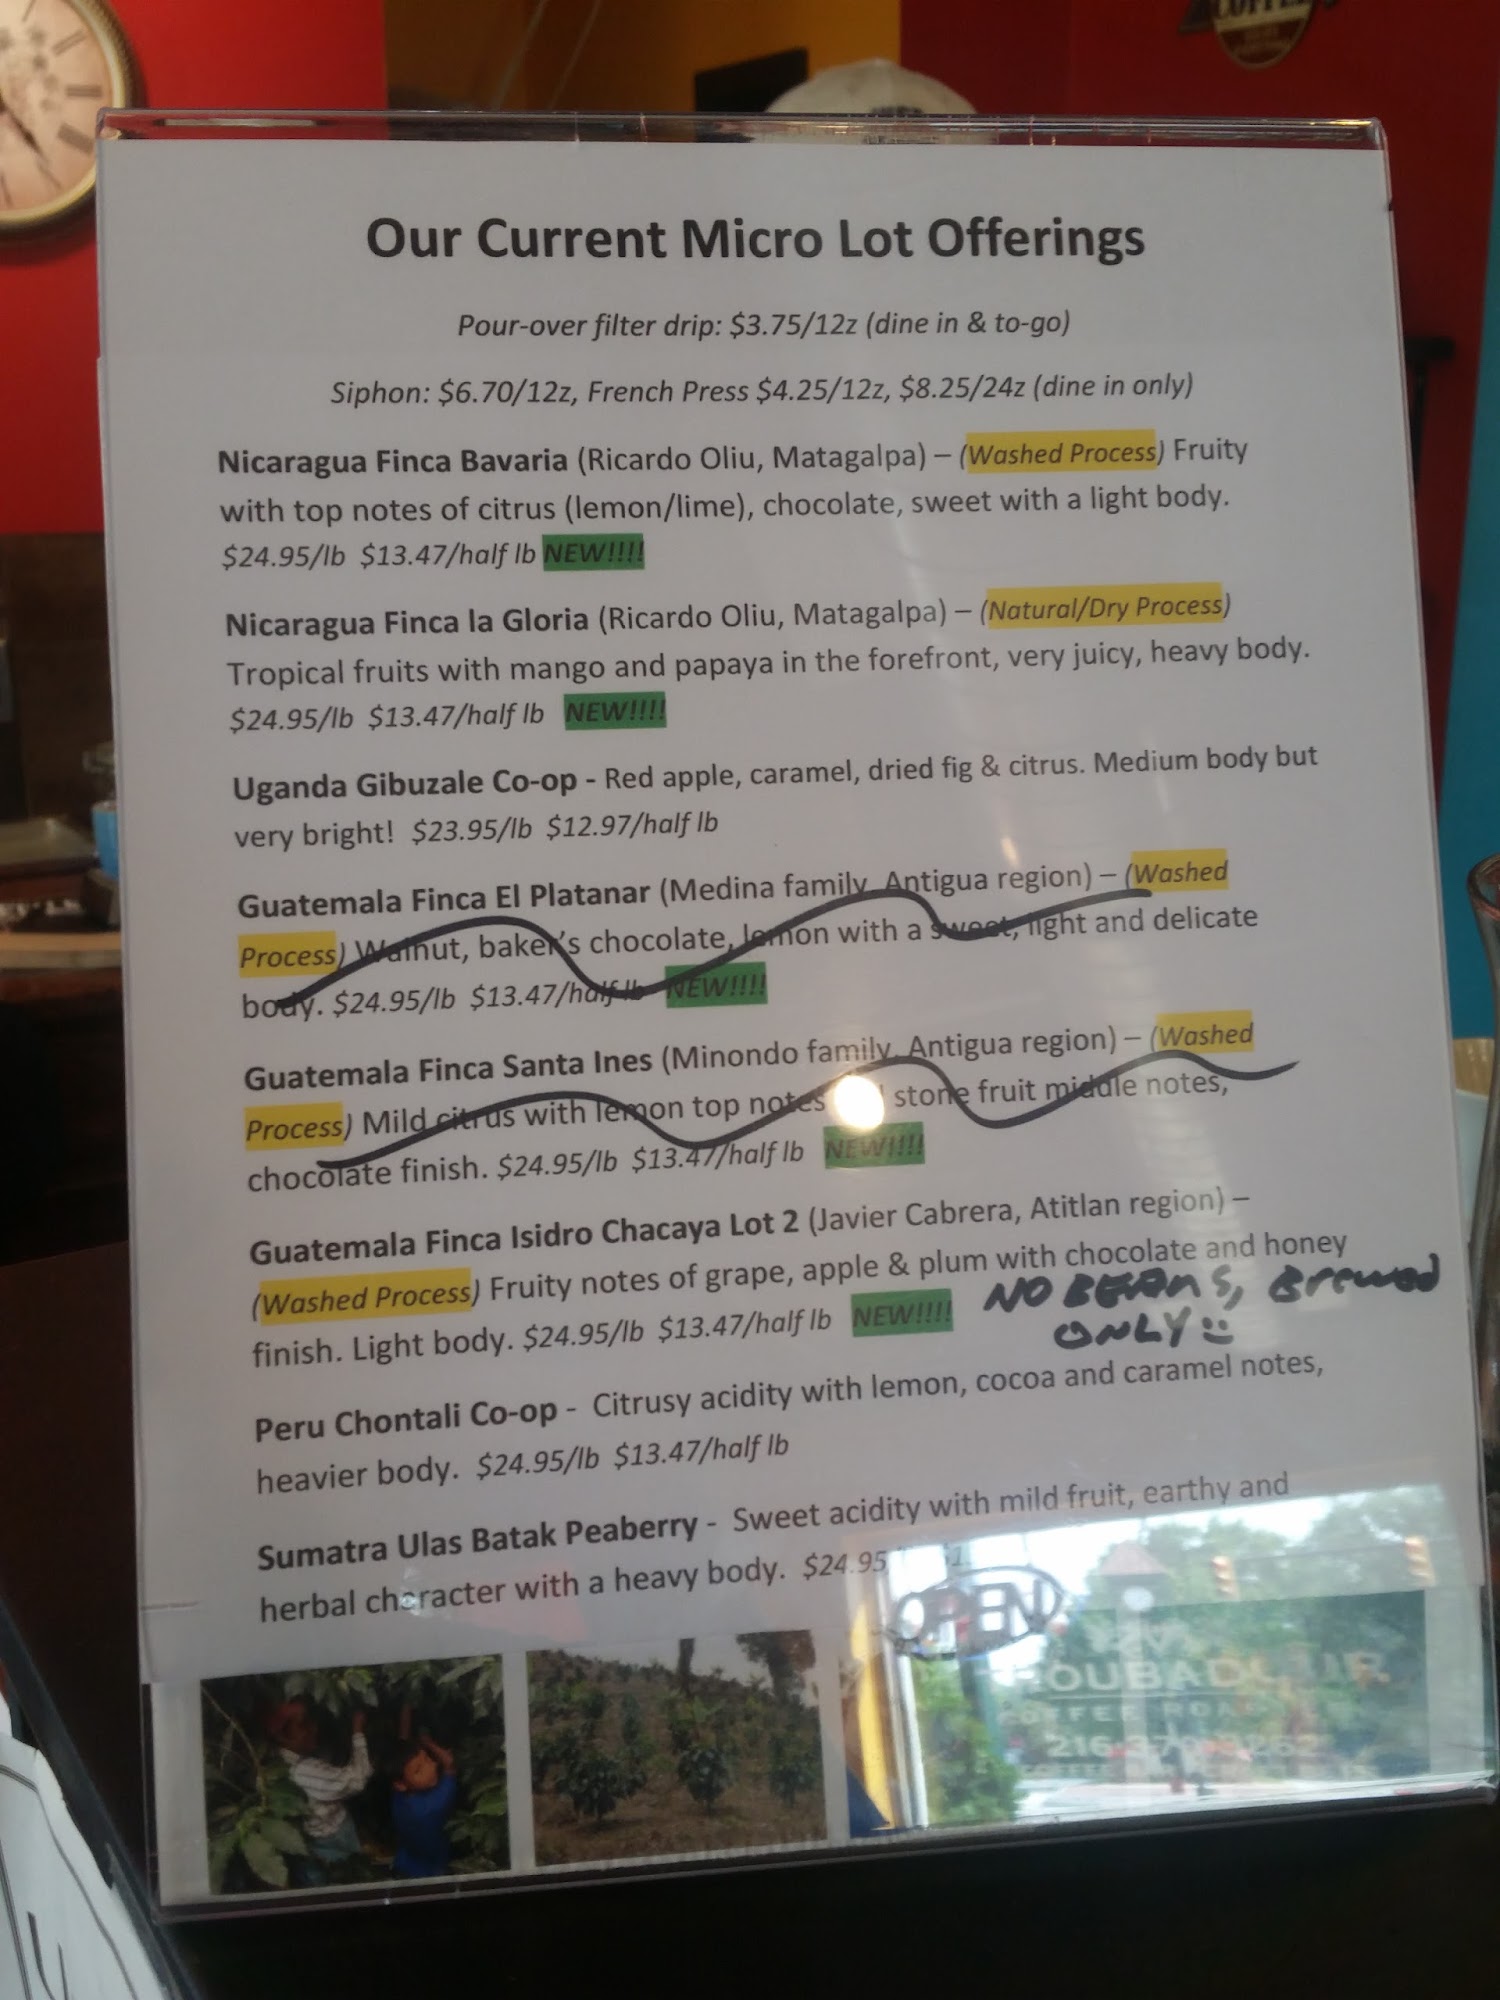 COFFEE
Our Current Micro Lot Offerings
Pour-over filter drip: $3.75/12z (dine in & to-go)
Siphon: $6.70/12z, French Press $4.25/12z, $8.25/24z (dine in only)
Nicaragua Finca Bavaria (Ricardo Oliu, Matagalpa) – (Washed Process) Fruity
with top notes of citrus (lemon/lime), chocolate, sweet with a light body.
$24.95/lb $13.47/half lb NEW!!!!
Nicaragua Finca la Gloria (Ricardo Oliu, Matagalpa) – (Natural/Dry Process)
Tropical fruits with mango and papaya in the forefront, very juicy, heavy body.
$24.95/lb $13.47/half lb NEW!!!!
Uganda Gibuzale Co-op - Red apple, caramel, dried fig & citrus. Medium body but
very bright! $23.95/lb $12.97/half lb
Guatemala Finca El Platanar (Medina family, Antigua region) – (Washed
Process) Walnut, baker's chocolate, lemon with a sweet, light and delicate
body. $24.95/lb $13.47/half lb NEW!!!!
Guatemala Finca Santa Ines (Minondo family, Antigua region) – (Washed
Process) Mild citrus with lemon top notes stone fruit middle notes,
chocolate finish. $24.95/lb $13.47/half lb NEW!!!!
Guatemala Finca Isidro Chacaya Lot 2 (Javier Cabrera, Atitlan region) –
(Washed Process) Fruity notes of grape, apple & plum with chocolate and honey
finish. Light body. $24.95/lb $13.47/half lb NEW!!!! NO BEANS, Brewed
ONLY
Peru Chontali Co-op - Citrusy acidity with lemon, cocoa and caramel notes,
heavier body. $24.95/lb $13.47/half lb
Sumatra Ulas Batak Peaberry - Sweet acidity with mild fruit, earthy and
herbal character with a heavy body. $24.95
OPEN